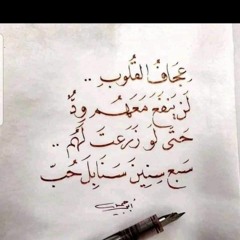 عِجَافُ القُلُوبِ ..
لَن يَنفَعَ مَعَهُم وِدٌّ
حَتَّى لَو زَرَعتَ لَهُم ..
سَبعَ سِنِينَ سَنَابِلَ حُبّ